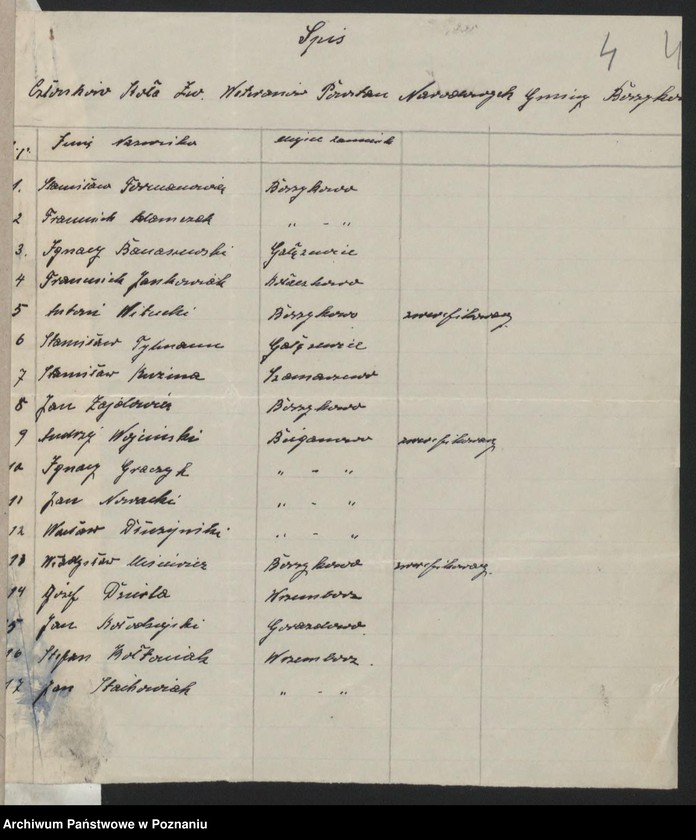 Spis
4 4
Członków Koła Zw. Weteranów Powstań Narodowych Gminy Borzykowo
L.p. Imię Nazwisko miejsce zamieszk
1. Stanisław Formanowicz Borzykowo
2 Franciszek Adamczak " - "
3. Ignacy Banaszewski Gałęzewice
4 Franciszek Jankowiak Kołaczkowo
5 Antoni Witucki Borzykowo zweryfikowany
6 Stanisław Tylmann Gałęzewice
7 Stanisław Kuzma Szamarzewo
8 Jan Zajdowicz Borzykowo
9 Andrzej Wojciński Bieganowo zweryfikowany
10 Ignacy Graczyk " - "
11 Jan Nowacki " - "
12 Wacław Dłużyński " - "
13 Władysław Misiewicz Borzykowo zweryfikowany.
14 Józef Dzioba Wszembórz
15 Jan Kołodziejski Gorazdowo
16 Stefan Kołtoniak Wszembórz.
17 Jan Stachowiak " - "
Archiwum Państwowe w Poznaniu